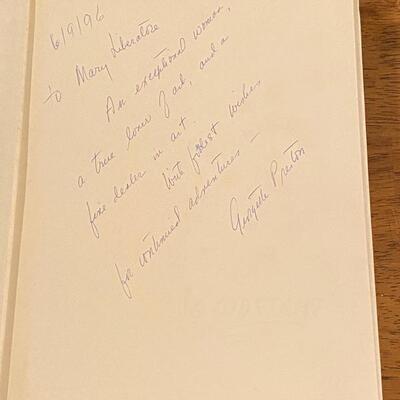 6/9/96
to Mary Liberatore
An exceptional woman,
a true lover of art, and a
fine dealer in art.
With fondest wishes
for continued adventures —
Georgette Preston